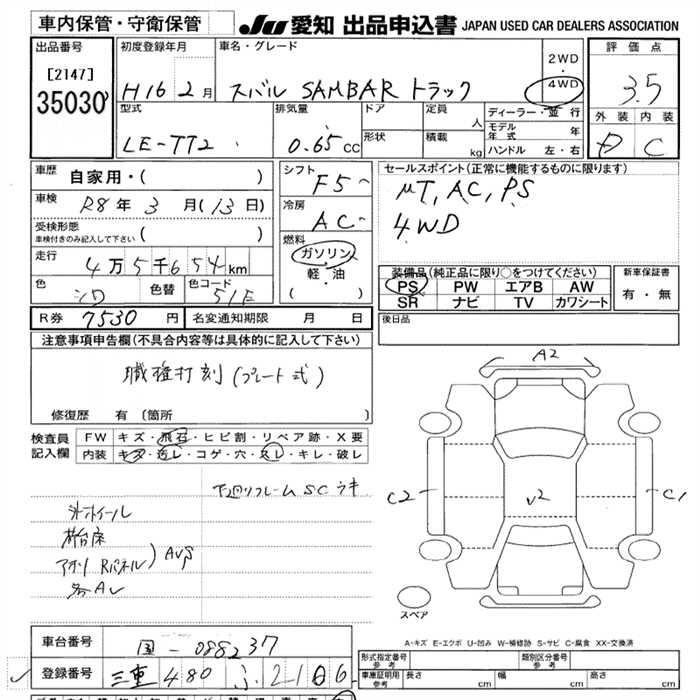 車内保管・守衛保管
JU 愛知 出品申込書 JAPAN USED CAR DEALERS ASSOCIATION
出品番号
[2147]
35030
初度登録年月
H16 2月
車名・グレード
スバル SAMBAR トラック
2WD
・
4WD
評価点
3.5
外装 内装
D C
型式
LE-TT2
排気量
0.65 cc
ドア
形状
定員
人
積載
kg
ディーラー・並行
モデル年式 年
ハンドル 左・右
車歴
自家用・( )
車検
R8年 3月(13日)
受検形態
車検付きのみ記入して下さい ( )
走行
4万5千654km
色
シロ
色替
色コード
51E
シフト
F5
冷房
AC
燃料
ガソリン
・
軽・油
( )
セールスポイント(正常に機能するものに限ります)
μT, AC, PS
4WD
装備品(純正品に限り○をつけてください)
PS PW エアB AW
SR ナビ TV カワシート
新車保証書
有・無
R券 7530 円 名変通知期限 月 日
後日品
注意事項申告欄(不具合内容等は具体的に記入して下さい)
職権打刻(プレート式)
修復歴 有〔箇所 〕
検査員
記入欄
FW キズ・飛石・ヒビ割・リペア跡・X要
内装 キズ・汚レ・コゲ・穴・スレ・キレ・破レ
下回リフレーム SC ラキ
外ホイール
荷台床
アオリ Rパネル) AVS
各AV
A2
C2
v2
C1
スペア
A-キズ E-エクボ U-凹み W-補修跡 S-サビ C-腐食 XX-交換済
車台番号
国-088237
登録番号
三重 480 ふ 2106
形式指定番号
参考
類別区分番号
参考
車庫証明用
参考
長さ cm
幅 cm
高さ cm